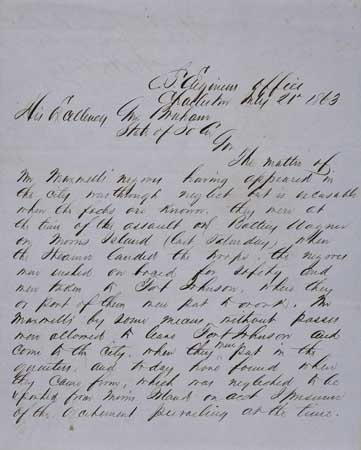 C. S. Engineers Office
Charleston July 21st 1863
His Excellency Gov Bonham
State of So Ca
Sir
The matter of
Mr Maxwell's negroes having appeared in
the city was through neglect but is excusable
when the facts are known. they were at
the time of the assault on Battery Wagner
on Morris Island (last Saturday), when
the Steamer landed the troops. the negroes
were rushed on board for safety and
were taken to Fort Johnson, where they
or part of them were put to work. Mr
Maxwell's by some means, without passes
were allowed to leave Fort Johnson and
come to the City. when they were put in the
quarters, and to day have found where
they came from, which was neglected to be
reported from Morris Island on acct I presume
of the excitement prevailing at the time.